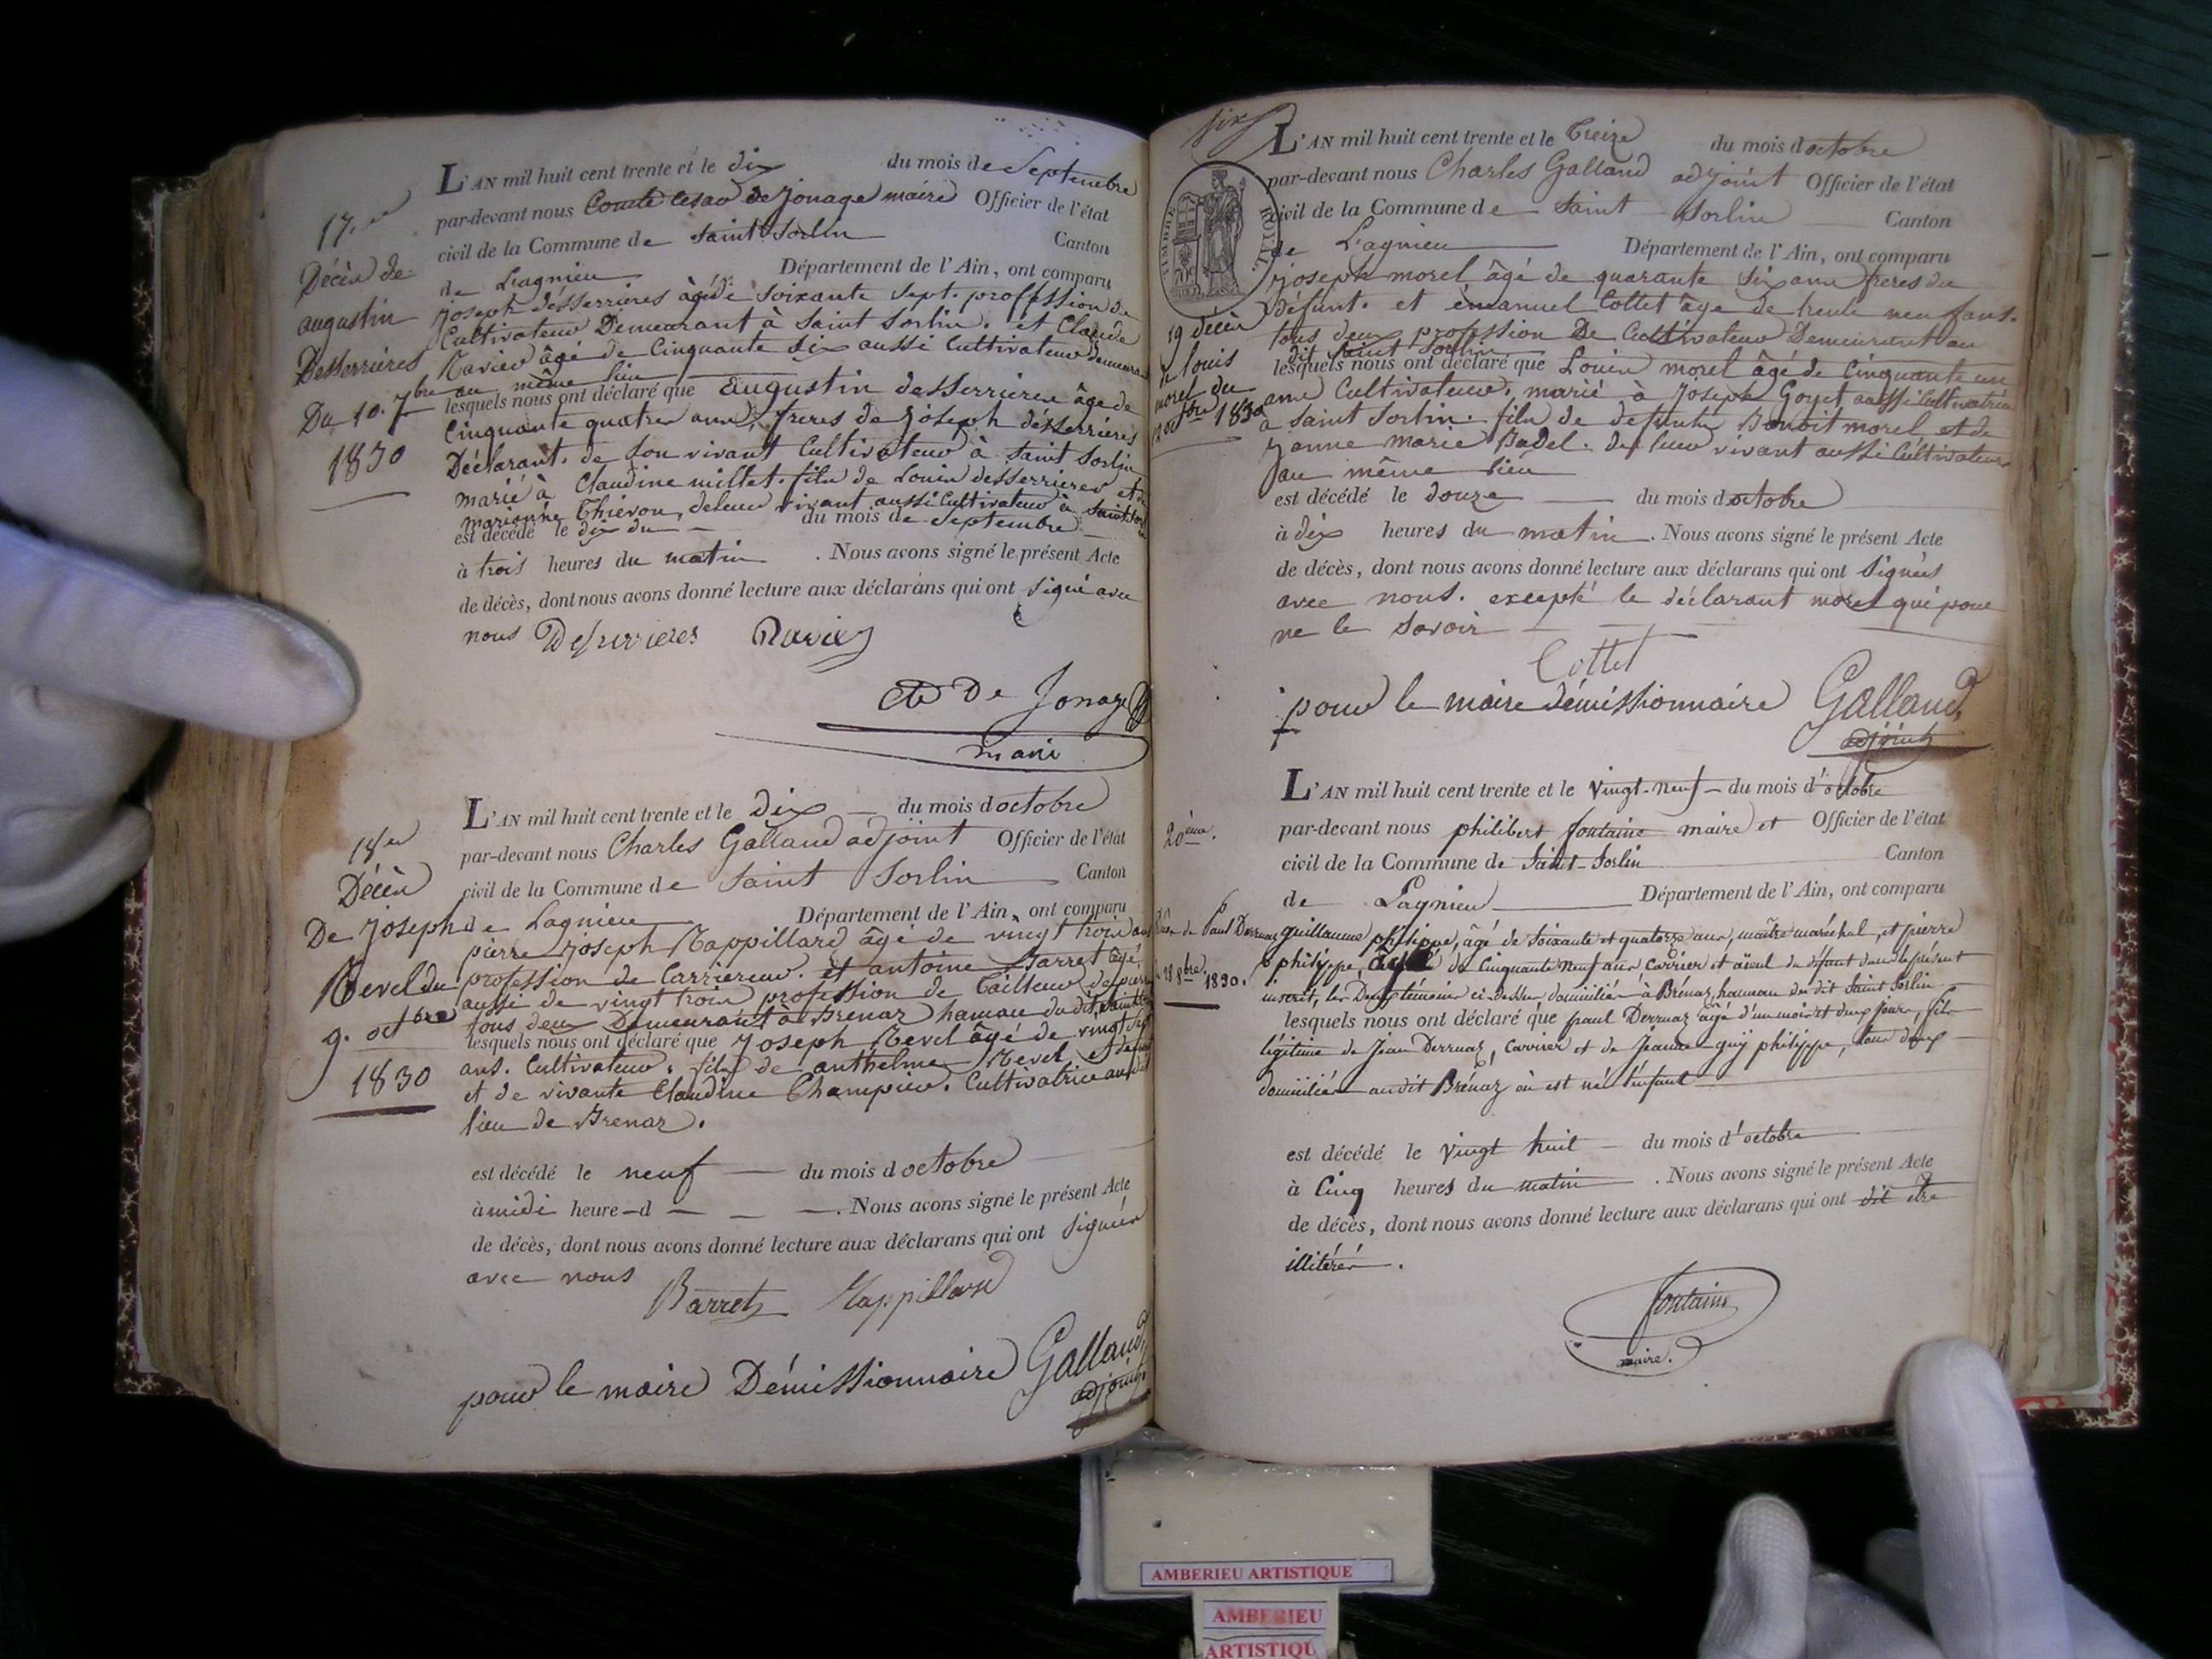 17.eme
Décès de
augustin
Desserrières
Du 10. 7bre
1830
L'AN mil huit cent trente et le dix du mois de Septembre
par-devant nous Comte Cesar de Jonage maire Officier de l'état
civil de la Commune de Saint Sorlin Canton
de Lagnieu Département de l'Ain, ont comparu
joseph desserrières âgé de soixante sept. proffession de
Cultivateur Demeurant à Saint Sorlin. et Claude
Ravier âgé de Cinquante six aussi Cultivateur Demeurant
au même lieu
lesquels nous ont déclaré que augustin desserrieres âgé de
Cinquante quatre ans, freres de joseph désserrieres
Déclarant. de son vivant Cultivateur à Saint Sorlin
marié à Claudine millet. fils de Louis desserrieres et de
marianne Thiévon, deleur vivant aussi Cultivateur à Saint Sor
est décédé le dix du du mois de Septembre
à trois heures du matin . Nous avons signé le présent Acte
de décès, dont nous avons donné lecture aux déclarans qui ont signé avec
nous Desserrieres Ravier
Cte De Jonage
maire
18.em
Décès
De joseph
Revel du
9. octbre
1830
L'AN mil huit cent trente et le Dix du mois d octobre
par-devant nous Charles Galland adjoint Officier de l'état
civil de la Commune de Saint Sorlin Canton
de Lagnieu Département de l'Ain, ont comparu
pierre joseph Rappillard âgé de vingt trois ans
profession de Carriereur. et antoine Barret âgé
aussi de vingt trois profession de tailleur de pierre
tous deux Demeurant à Brenaz hameau du dit Saint
lesquels nous ont déclaré que joseph Revel âgé de vingt sept
ans. Cultivateur. fils de anthelme Revel
et de vivante Claudine Champier. Cultivatrice au dit
lieu de Brenaz.
est décédé le neuf du mois d octobre
à midi heure d . Nous avons signé le présent Acte
de décès, dont nous avons donné lecture aux déclarans qui ont signés
avec nous Barret Rappillard
pour le maire Démissionnaire Galland
adjoint
six
TIMBRE ROYAL
70c
19 décès
de louis
morel du
12 octbre 1830
L'AN mil huit cent trente et le treize du mois d octobre
par-devant nous Charles Galland adjoint Officier de l'état
civil de la Commune de Saint Sorlin Canton
de Lagnieu Département de l'Ain, ont comparu
joseph morel âgé de quarante six ans freres du
défunt. et émanuel Cottet âgé de trente neuf ans.
tous deux profession De Cultivateur Demeurant au
dit Saint Sorlin
lesquels nous ont déclaré que Louis morel âgé de Cinquante un
ans Cultivateur. marié à joseph Goyet aussi Cultivatrice
à Saint Sorlin. fils de defunts Benoit morel et de
janne marie Badel. de leur vivant aussi Cultivateurs
au même lieu
est décédé le douze du mois d octobre
à dix heures du matin . Nous avons signé le présent Acte
de décès, dont nous avons donné lecture aux déclarans qui ont signés
avec nous. excepté le déclarant morel qui pour
ne le savoir
Cottet
pour le maire démissionnaire Galland
adjoint
20ème.
de Paul Derruaz
28 8bre 1830.
L'AN mil huit cent trente et le vingt-neuf du mois d'octobre
par-devant nous philibert fontaine maire et Officier de l'état
civil de la Commune de Saint-Sorlin Canton
de Lagnieu Département de l'Ain, ont comparu
guillaume philippe, âgé de soixante et quatorze ans, maître maréchal, et pierre
philippe âgé de Cinquante neuf ans carrier et aïeul du défunt dans le présent
inscrit, les Deux témoins ci-dessus domiciliés à Brénaz, hameau du dit Saint Sorlin
lesquels nous ont déclaré que paul Derruaz âgé d'un mois et deux jours, fils
légitime de Jean Derruaz, carrier et de Jeanne guy philippe, tous deux
domiciliés audit Brénaz où est né l'enfant
est décédé le vingt huit du mois d'octobre
à Cinq heures du matin . Nous avons signé le présent Acte
de décès, dont nous avons donné lecture aux déclarans qui ont dit être
illitérés.
fontaine
maire.
AMBERIEU ARTISTIQUE
AMBERIEU
ARTISTIQU